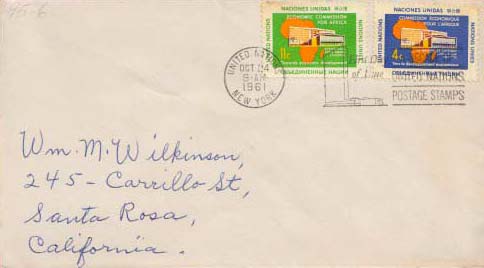 45-6
NACIONES UNIDAS
ECONOMIC COMMISSION
FOR AFRICA
UNITED NATIONS
NATIONS UNIES
11c
ОБЪЕДИНЕННЫЕ НАЦИИ
NACIONES UNIDAS
COMMISSION ÉCONOMIQUE
POUR L'AFRIQUE
UNITED NATIONS
NATIONS UNIES
4c
ОБЪЕДИНЕННЫЕ НАЦИИ
UNITED NATIONS
OCT 24
9-AM
1961
NEW YORK
of Issue
UNITED NATIONS
POSTAGE STAMPS
Wm. M. Wilkinson,
245 - Carrillo St,
Santa Rosa,
California.